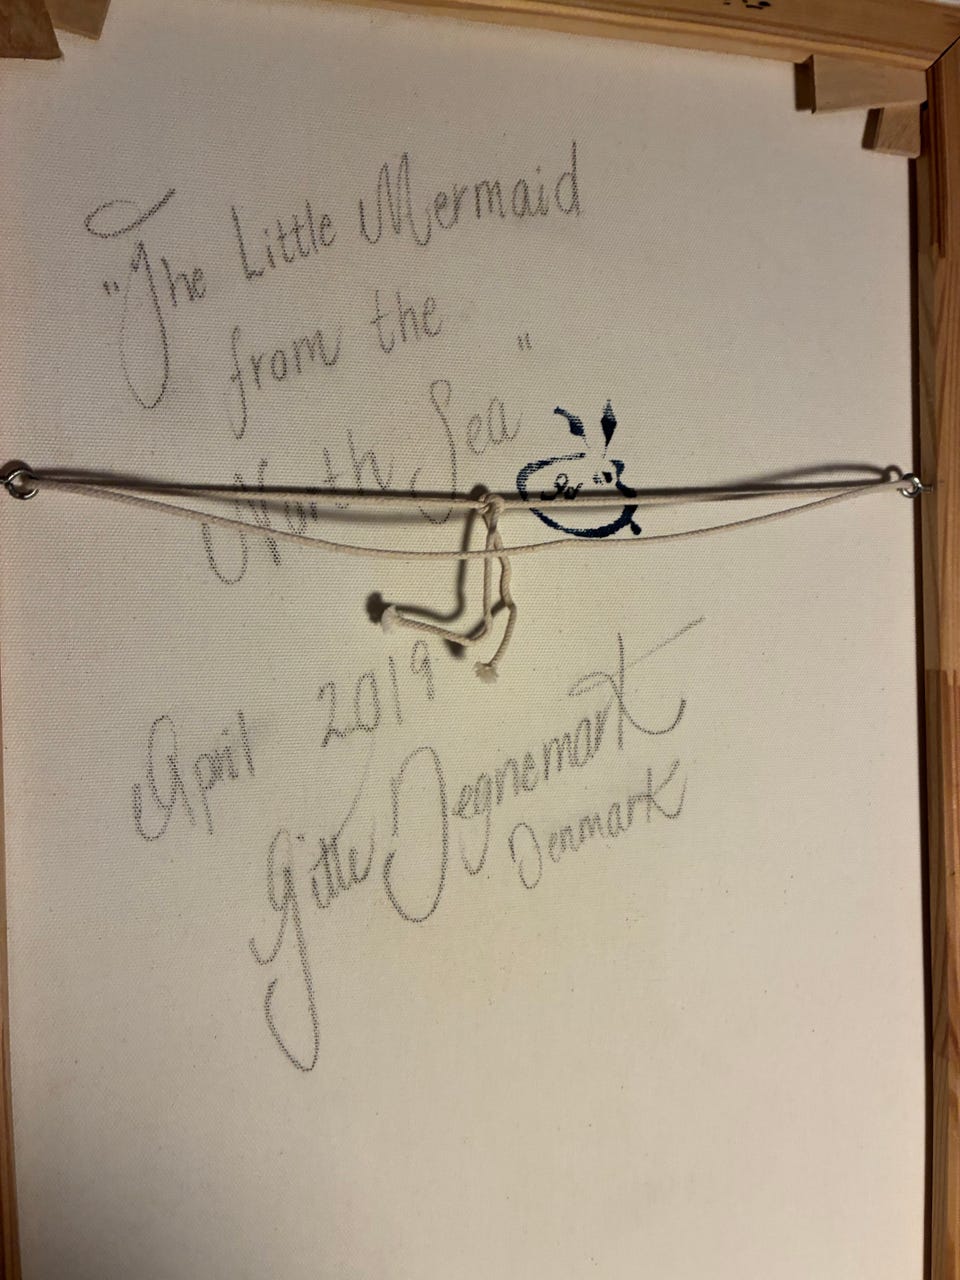 "The Little Mermaid
from the
North Sea"
April 2019
Gitte Degnemark
Denmark